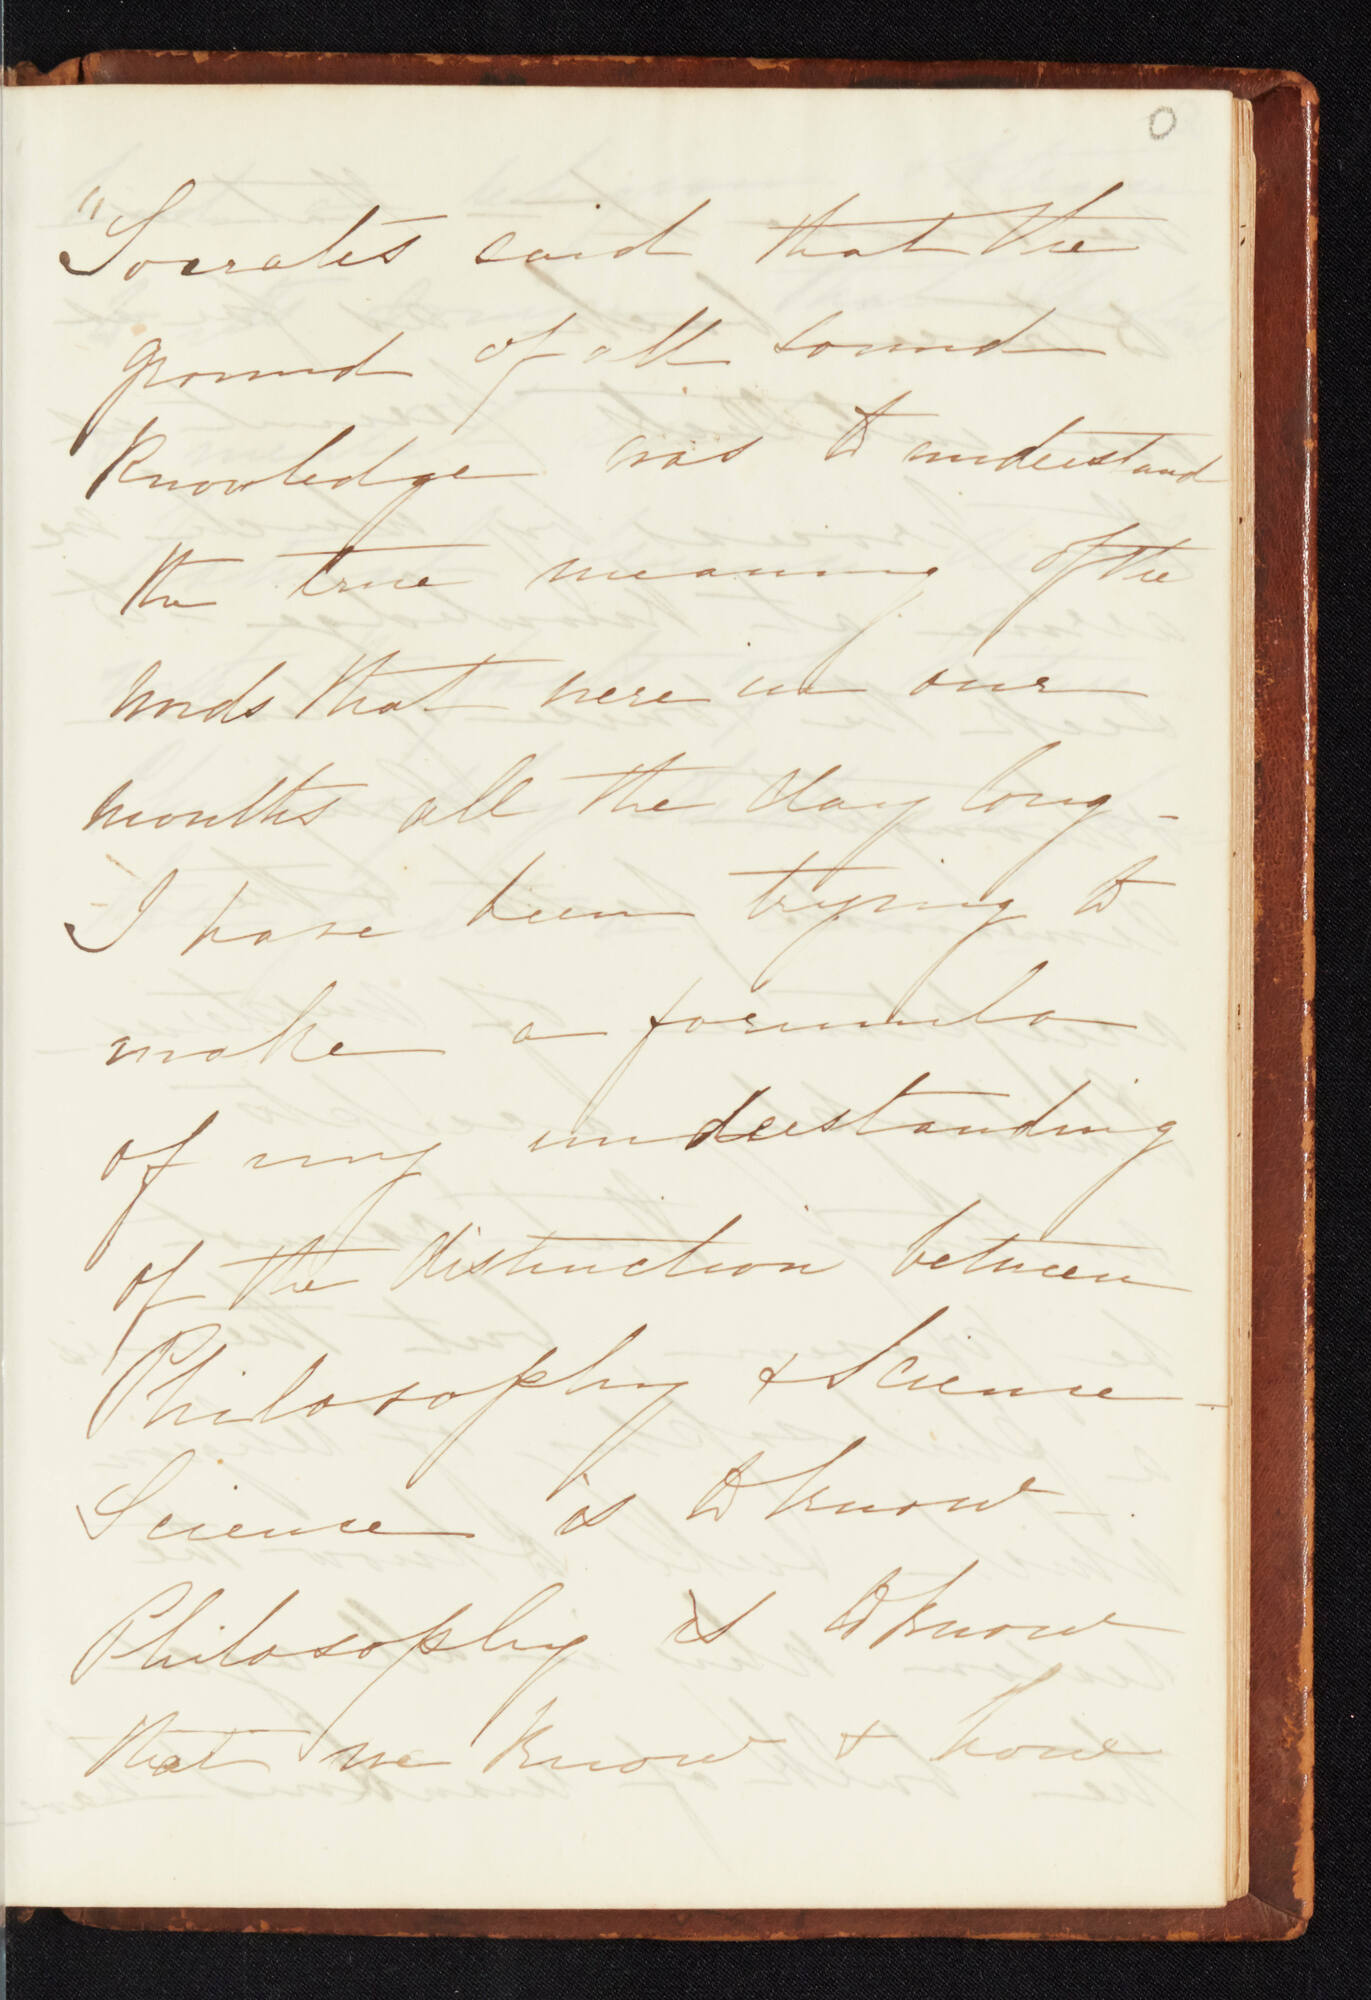 0
"Socrates said that the
ground of all sound
knowledge was to understand
the true meaning of the
words that were in our
mouths all the day long -
I have been trying to
make a formula
of my understanding
of the distinction between
Philosophy & Science -
Science is to know -
Philosophy is to know
that we know & how